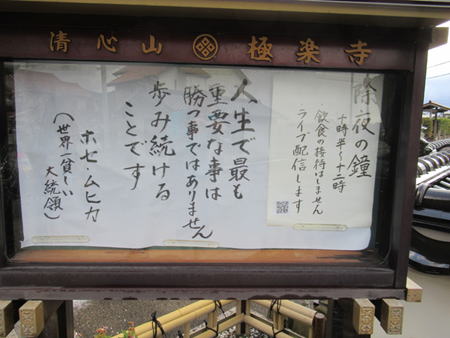 清心山 極楽寺
除夜の鐘
十時半〜十二時
・飲食の接待はしません
・ライブ配信します
人生で最も
重要な事は
勝つ事ではありません
歩み続ける
ことです
ホセ・ムヒカ
(世界一貧しい
大統領)